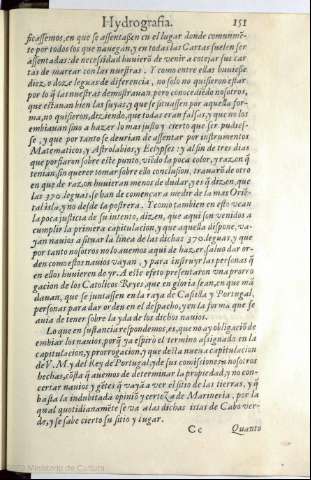 Hydrografia. 151
ficassemos, en que se assentassen en el lugar donde comunmẽ-
te por todos los que nauegan, y en todas las Cartas suelen ser
assentadas: de necesidad huuierõ de venir a cotejar sus car
tas de marear con las nuestras. Y como entre ellas huuiesse
diez o doze leguas de diferencia, no solo no quisieron estar
por lo q̃ las nuestras demostrauan, pero conociẽdo nosotros,
que estauan bien las suyas, y que se situassen por aquella for-
ma, no quisieron, diziendo, que todas eran falsas, y que no los
embiauan sino a hazer lo mas justo y cierto que ser pudies-
se, y que por tanto se deurian de assentar por instrumentos
Matematicos, y Astrolabios, y Eclypses: y al fin de tres dias
que porfiaron sobre este punto, viẽdo la poca color, y razon q̃
tenian, sin querer tomar sobre ello conclusion, tramarõ de otro
en que de razon huuieran menos de dudar, y es q̃ dizen, que
las 370. leguas se han de començar a medir de la mas Orie-
tal isla, y no desde la postrera. Y como tambien en esto vean
la poca justicia de su intento, dizen, que aqui son venidos a
cumplir la primera capitulacion, y que aquella dispone, va-
yan nauios a situar la linea de las dichas 370. leguas, y que
por tanto nosotros no lo auemos aqui de hazer, saluo dar or-
den como estos nauios vayan, y para instruyr las personas q̃
en ellos huuieren de yr. A este efeto presentaron vna prorro
gacion de los Catolicos Reyes, que en gloria sean, en que mã
dauan, que se juntassen en la raya de Castilla y Portugal,
personas para dar orden en el despacho, y en la forma que se
auia de tener sobre la yda de los dichos nauios.
Lo que en sustancia respondemos, es, que no ay obligaciõ de
embiar los nauios, porq̃ ya espirò el termino assignado en la
capitulacion, y prorrogacion, y que de la nueua capitulacion
de V. M. y del Rey de Portugal, y de las comissiones a nosotros
hechas, cõsta q̃ auemos de determinar la propiedad, y no con-
certar nauios y gẽtes q̃ vayã a ver el sitio de las tierras, y q̃
basta la indubitada opiniõ y certeza de Marineria, por la
qual quotidianamẽte se va a las dichas islas de Cabo ver-
de, y se sabe cierto su sitio y lugar.
Cc Quanto
Ministerio de Cultura